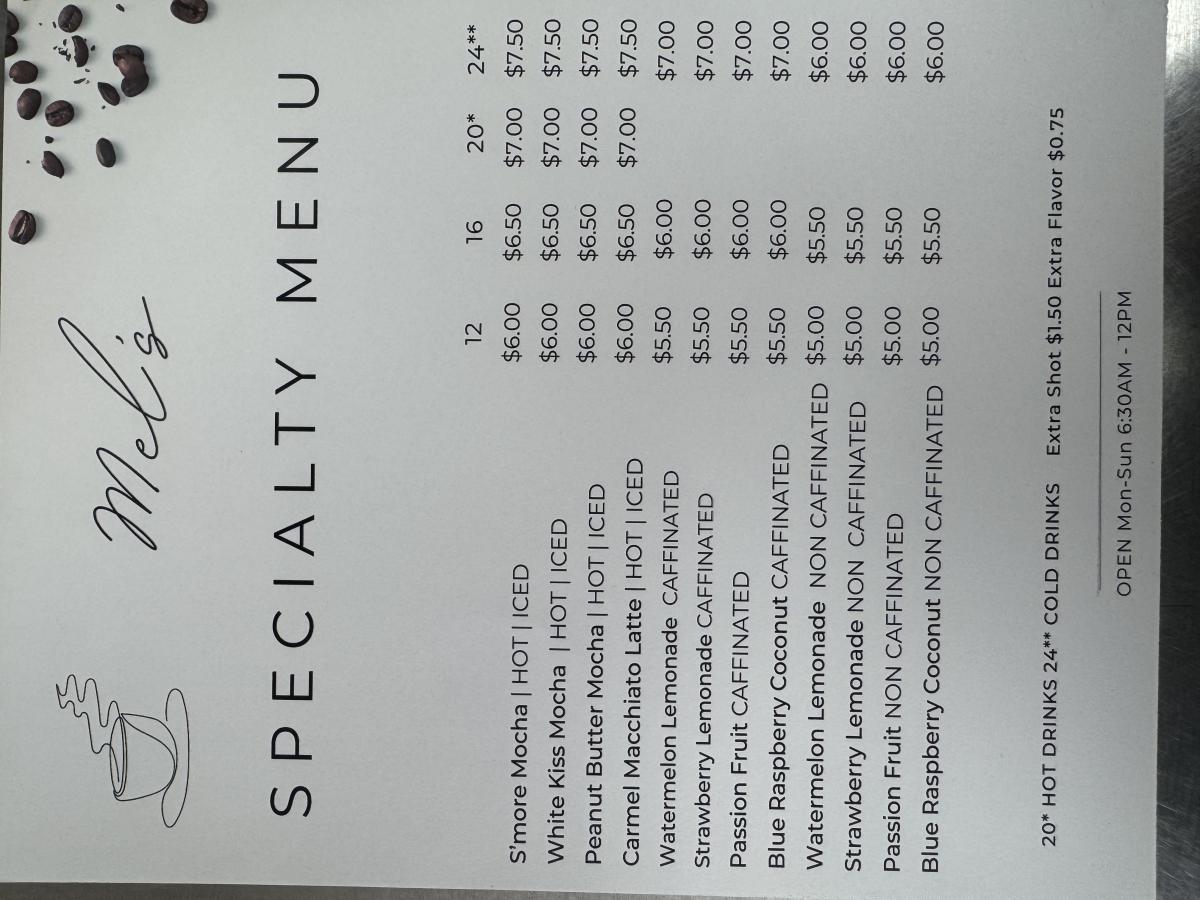 Mel's
SPECIALTY MENU
12 16 20* 24**
S'more Mocha | HOT | ICED $6.00 $6.50 $7.00 $7.50
White Kiss Mocha | HOT | ICED $6.00 $6.50 $7.00 $7.50
Peanut Butter Mocha | HOT | ICED $6.00 $6.50 $7.00 $7.50
Carmel Macchiato Latte | HOT | ICED $6.00 $6.50 $7.00 $7.50
Watermelon Lemonade CAFFINATED $5.50 $6.00 $7.00
Strawberry Lemonade CAFFINATED $5.50 $6.00 $7.00
Passion Fruit CAFFINATED $5.50 $6.00 $7.00
Blue Raspberry Coconut CAFFINATED $5.50 $6.00 $7.00
Watermelon Lemonade NON CAFFINATED $5.00 $5.50 $6.00
Strawberry Lemonade NON CAFFINATED $5.00 $5.50 $6.00
Passion Fruit NON CAFFINATED $5.00 $5.50 $6.00
Blue Raspberry Coconut NON CAFFINATED $5.00 $5.50 $6.00
20* HOT DRINKS 24** COLD DRINKS Extra Shot $1.50 Extra Flavor $0.75
OPEN Mon-Sun 6:30AM - 12PM